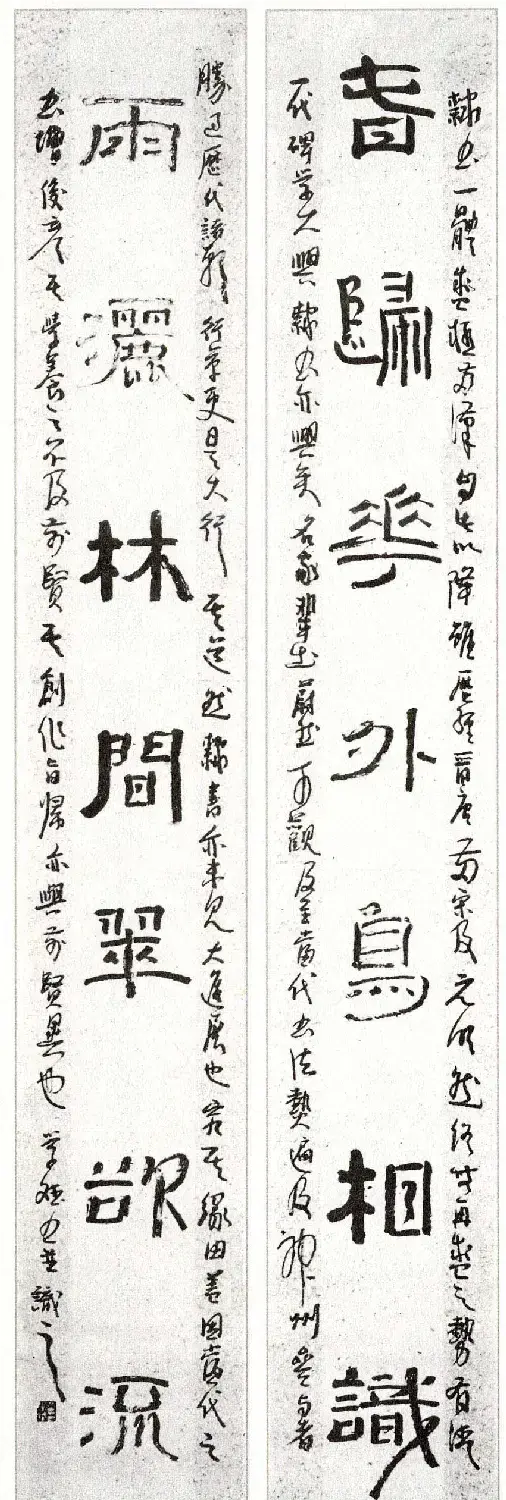 隸書一體盛極於漢自此以降雖歷經晉唐兩宋及元明然終無再盛之勢有清
春歸華外鳥相識
一代碑学大興隸書亦興矣名家輩出蔚然可觀及至當代書法熱遍及神州參与者
勝過歷代諸朝行草更是大行其道然隸書亦未見大進展也究其緣由蓋因當代之
雨灑林間翠欲流
書壇俊彥其學養之不及前賢其創作旨歸亦與前賢異也 書並識之